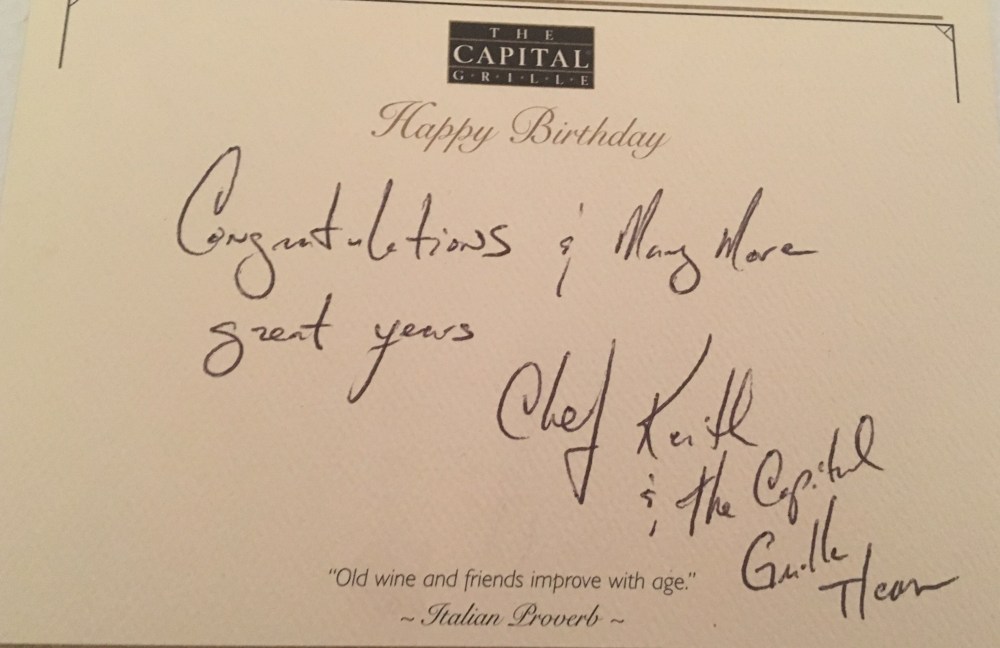 THE
CAPITAL
G·R·I·L·L·E
Happy Birthday
Congratulations & Many More
great years
Chef Keith
& The Capital
Grille
Team
"Old wine and friends improve with age."
~ Italian Proverb ~